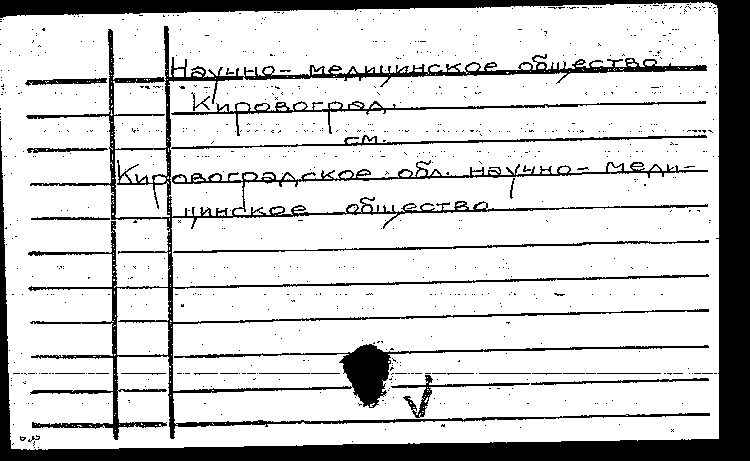 Научно-медицинское общество.
Кировоград.
см.
Кировоградское обл. научно-меди-
цинское общество